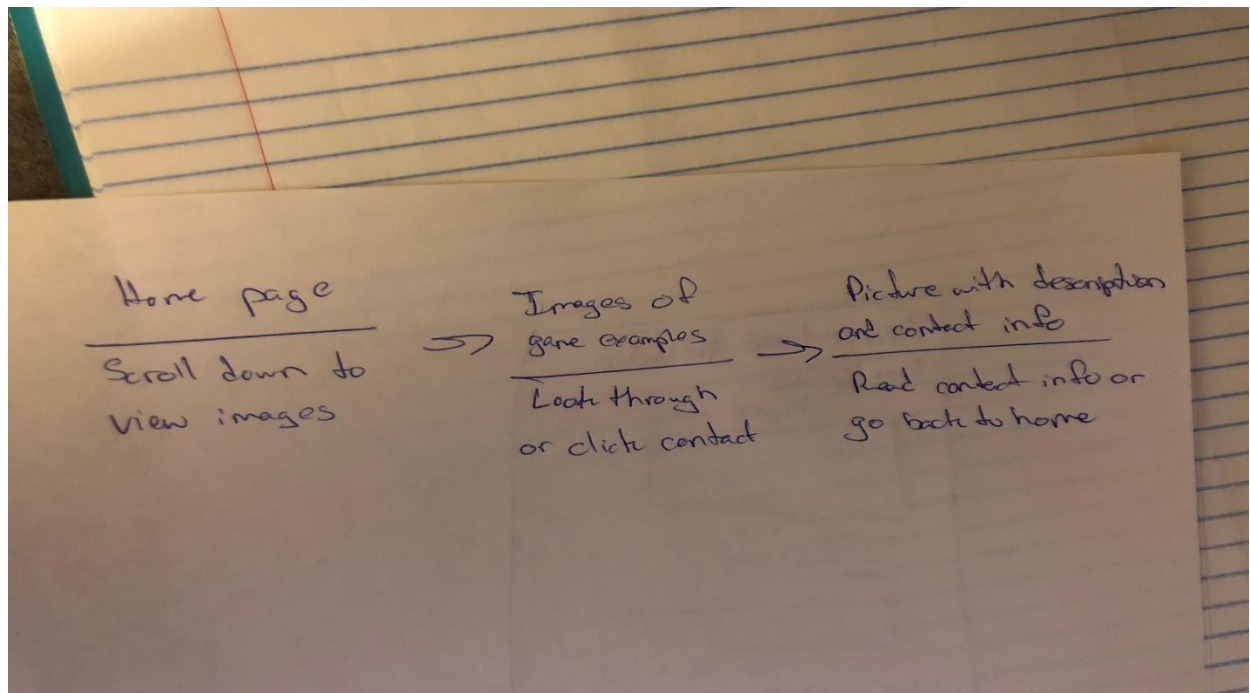 Home page
Scroll down to
view images
→
Images of
game examples
Look through
or click contact
→
Picture with description
and contact info
Read contact info or
go back to home